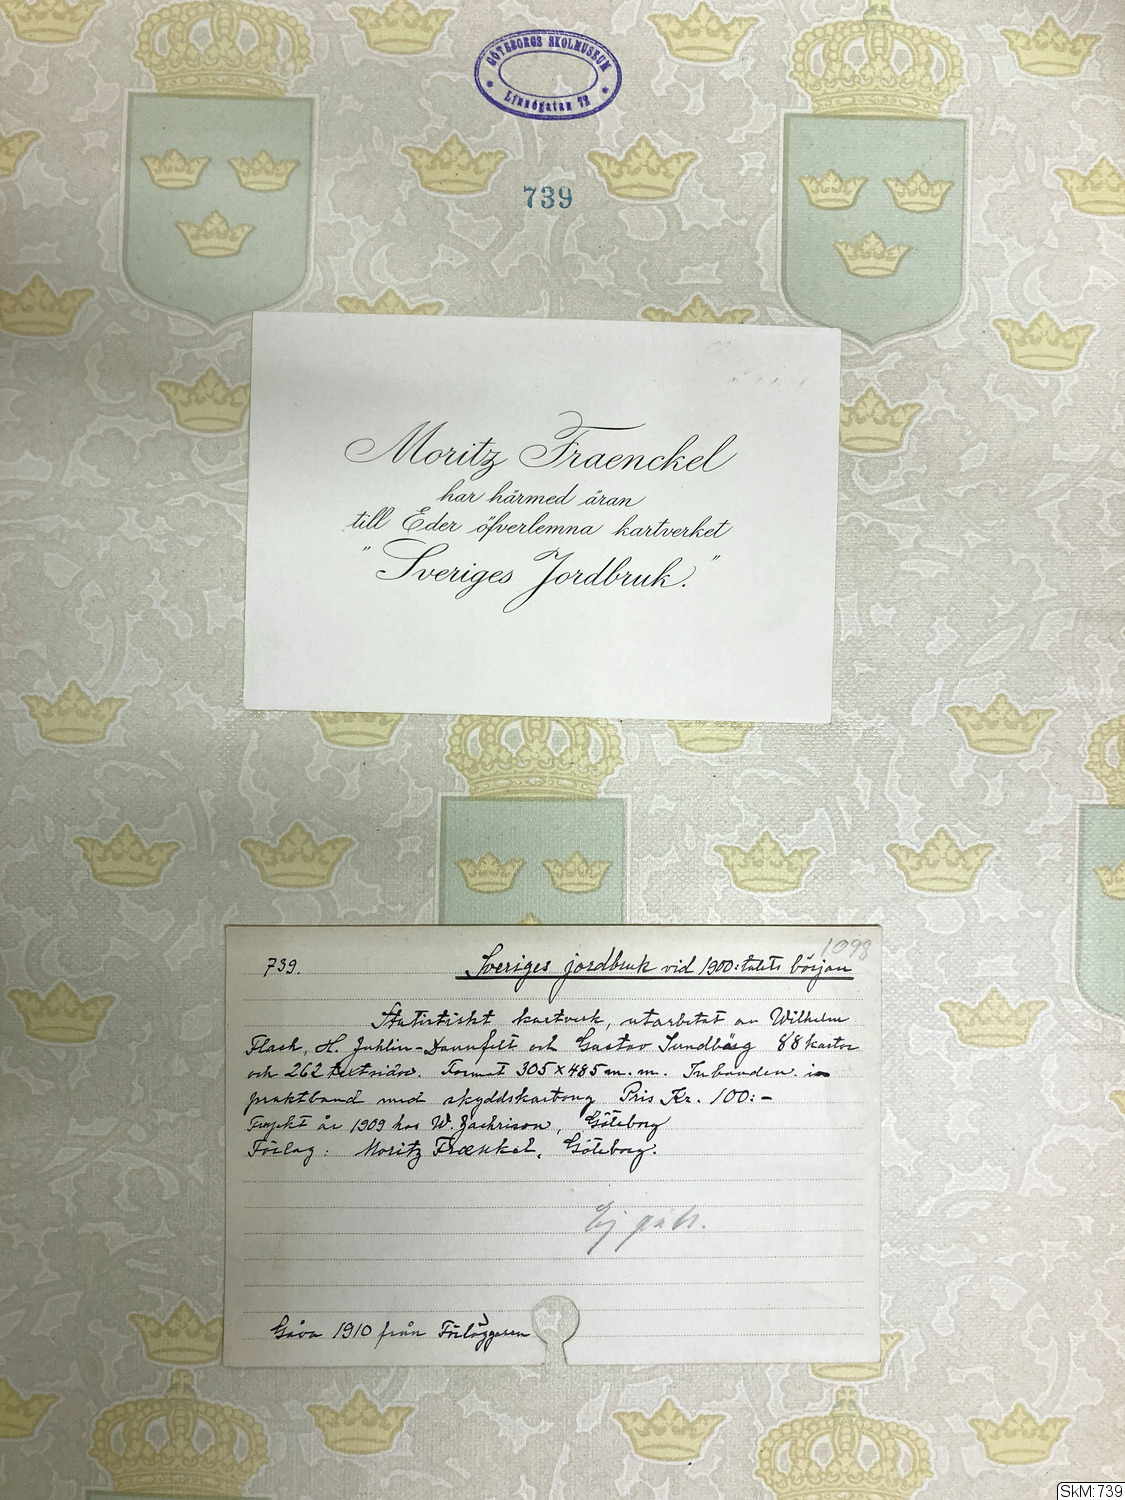 GÖTEBORGS SKOLMUSEUM
Linnégatan 72
739
Moritz Fraenckel
har härmed äran
till Eder öfverlemna kartverket
"Sveriges Jordbruk."
1098
739. Sveriges jordbruk vid 1900:talets början
Statistiskt kartverk, utarbetat av Wilhelm
Flach, H. Juhlin-Dannfelt och Gustav Sundbärg 88 kartor
och 262 textsidor. Format 305 x 485 m.m. Inbunden i
praktband med skyddskartong Pris Kr. 100:-
Tryckt år 1909 hos W. Zachrisson, Göteborg
Förlag: Moritz Frænkel, Göteborg.
Ej
Gåva 1910 från Förläggaren
SkM:739